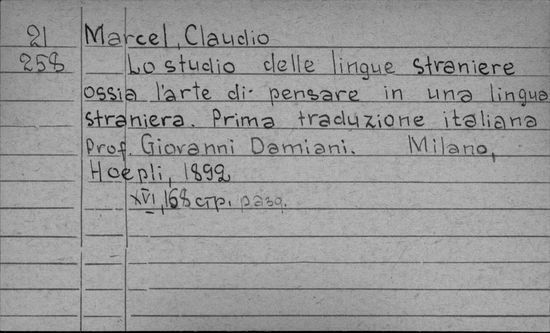 21 Marcel, Claudio
258 Lo studio delle lingue straniere
ossia l'arte di pensare in una lingua
straniera. Prima traduzione italiana
Prof. Giovanni Damiani. Milano,
Hoepli, 1892
XVI, 168 стр. разд.